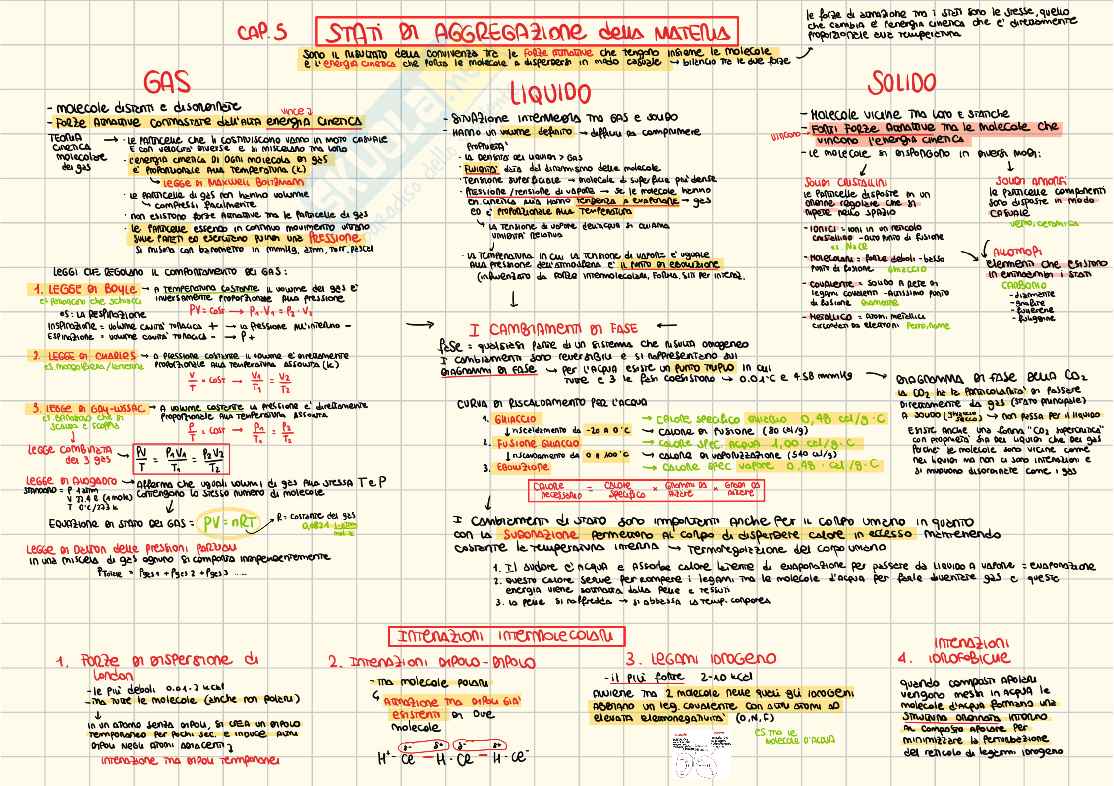 CAP. 5 STATI DI AGGREGAZIONE della MATERIA
le forze di attrazione tra i stati sono le stesse, quello
che cambia è l'energia cinetica che è direttamente
proporzionale alla temperatura
sono il risultato della convivenza tra le forze attrattive che tengono insieme le molecole
e l'energia cinetica che porta le molecole a disperdersi in modo casuale → bilancio tra le due forze
GAS
- molecole distanti e disordinate
vince
- forze attrattive contrastate dall'alta energia cinetica
TEORIA
cinetica
molecolare
dei gas
→ · le particelle che li costituiscono vanno in moto casuale
e con velocità diverse e si miscelano tra loro
· l'energia cinetica di ogni molecola di gas
è proporzionale alla temperatura (K)
↳ LEGGE DI MAXWELL BOLTZMANN
· le particelle di gas non hanno volume
↳ compressi facilmente
· non esistono forze attrattive tra le particelle di gas
· le particelle essendo in continuo movimento urtano
sulle pareti ed esercitano quindi una PRESSIONE
si misura con barometro in mmHg, atm, torr, pascal
LEGGI CHE REGOLANO IL COMPORTAMENTO DEI GAS:
1. LEGGE DI BOYLE → A TEMPERATURA COSTANTE il volume del gas è
inversamente proporzionale alla pressione
es: la respirazione PV = cost → P₁·V₁ = P₂·V₂
inspirazione = volume cavità toracica + → la pressione all'interno -
espirazione = volume cavità toracica - → P +
2. LEGGE DI CHARLES → a pressione costante il volume è direttamente
es mongolfiera/lanterna proporzionale alla temperatura assoluta (K)
V/T = cost → V₁/T₁ = V₂/T₂
3. LEGGE DI GAY-LUSSAC → A volume costante la pressione è direttamente
proporzionale alla temperatura assoluta
P/T = cost → P₁/T₁ = P₂/T₂
LEGGE COMBINATA
dei 3 gas → PV/T = P₁V₁/T₁ = P₂V₂/T₂
LEGGE DI AVOGADRO → afferma che uguali volumi di gas alla stessa T e P
contengono lo stesso numero di molecole
STANDARD = P 1 atm
V 22,4 l (1 mole)
T 0°C/273 K
EQUAZIONE DI STATO DEI GAS = PV = nRT
R = costante dei gas
0,0821
LEGGE DI DALTON delle PRESSIONI PARZIALI
in una miscela di gas ognuno si comporta indipendentemente
Ptotale = Pgas1 + Pgas2 + Pgas3 ....
LIQUIDO
- situazione intermedia tra gas e solido
- hanno un volume definito → difficili da comprimere
proprietà
· la densità dei liquidi > gas
· fluidità data dal dinamismo delle molecole
· tensione superficiale → molecole di superficie più dense
· pressione/tensione di vapore → se le molecole hanno
en cinetica alta hanno tendenza a evaporare → gas
ed è proporzionale alla temperatura
↳ la tensione di vapore dell'acqua si chiama
umidità relativa
· la temperatura in cui la tensione di vapore è uguale
alla pressione dell'atmosfera è il punto di ebollizione
I CAMBIAMENTI DI FASE
fase = qualsiasi parte di un sistema che risulta omogeneo
I cambiamenti sono reversibili e si rappresentano sui
DIAGRAMMI DI FASE → per l'acqua esiste un PUNTO TRIPLO in cui
tutte e 3 le fasi coesistono → 0.01°C e 4.58 mmHg
CURVA DI RISCALDAMENTO PER L'ACQUA
1. GHIACCIO → calore specifico ghiaccio 0,48 cal/g·C
↓ riscaldamento da -20 a 0°C → calore di fusione (80 cal/g)
2. FUSIONE GHIACCIO → calore spec. acqua 1,00 cal/g·C
↓ riscaldamento da 0 a 100°C → calore di vaporizzazione (540 cal/g)
3. EBOLLIZIONE → calore spec vapore 0,48 · cal/g·C
CALORE NECESSARIO = CALORE SPECIFICO × GRAMMI DA ALZARE × GRADI DA ALZARE
I cambiamenti di stato sono importanti anche per il corpo umano in quanto
con la sudorazione permettono al corpo di disperdere calore in eccesso mantenendo
costante la temperatura interna → termoregolazione del corpo umano
1. Il sudore è acqua e assorbe calore latente di evaporazione per passare da liquido a vapore = evaporazione
2. questo calore serve per rompere i legami tra le molecole d'acqua per farle diventare gas e questa
energia viene sottratta dalla pelle e tessuti
3. la pelle si raffredda → si abbassa la temp. corporea
SOLIDO
- molecole vicine tra loro e statiche
vincono
- forti forze attrattive tra le molecole che
vincono l'energia cinetica
- le molecole si dispongono in diversi modi:
SOLIDI CRISTALLINI
le particelle disposte in un
ordine regolare che si
ripete nello spazio
SOLIDI AMORFI
le particelle componenti
sono disposte in modo
casuale
vetro, ceramica
- IONICI = ioni in un reticolo
cristallino - alto punto di fusione
es NaCl
- MOLECOLARI = forze deboli - basso
punto di fusione ghiaccio
- COVALENTE = solido a rete di
legami covalenti - altissimo punto
di fusione diamante
- METALLICO = atomi metallici
circondati da elettroni ferro, rame
ALLOTROPI
elementi che esistono
in entrambi i stati
CARBONIO
- diamante
- grafite
- fullerene
- fuliggine
DIAGRAMMA DI FASE DELLA CO₂
la CO₂ ha la particolarità di passare
direttamente da gas (stato principale)
a solido (ghiaccio secco) → non passa per il liquido
Esiste anche una forma "CO₂ supercritica"
con proprietà sia dei liquidi che dei gas
poiché le molecole sono vicine come
nei liquidi ma non ci sono interazioni e
si muovono disordinate come i gas
INTERAZIONI INTERMOLECOLARI
1. FORZE DI DISPERSIONE di
London
- le più deboli
- tra tutte le molecole (anche non polari)
↓
in un atomo senza dipoli, si crea un dipolo
temporaneo per pochi sec. e induce altri
dipoli negli atomi adiacenti
interazione tra dipoli temporanei
2. INTERAZIONI DIPOLO-DIPOLO
- tra molecole polari
↳ attrazione tra dipoli già
esistenti di due
molecole
δ- δ+ δ-
H⁺ - Cl⁻ — H - Cl — H · Cl⁻
3. LEGAMI IDROGENO
- il più forte 2-10 kcal
Avviene tra 2 molecole nelle quali gli idrogeni
abbiano un leg. covalente con altri atomi ad
elevata elettronegatività (O, N, F)
es tra le
molecole d'acqua
4. INTERAZIONI
IDROFOBICHE
quando composti apolari
vengono messi in acqua le
molecole d'acqua formano una
struttura ordinata intorno
al composto apolare per
minimizzare la perturbazione
del reticolo di legami idrogeno